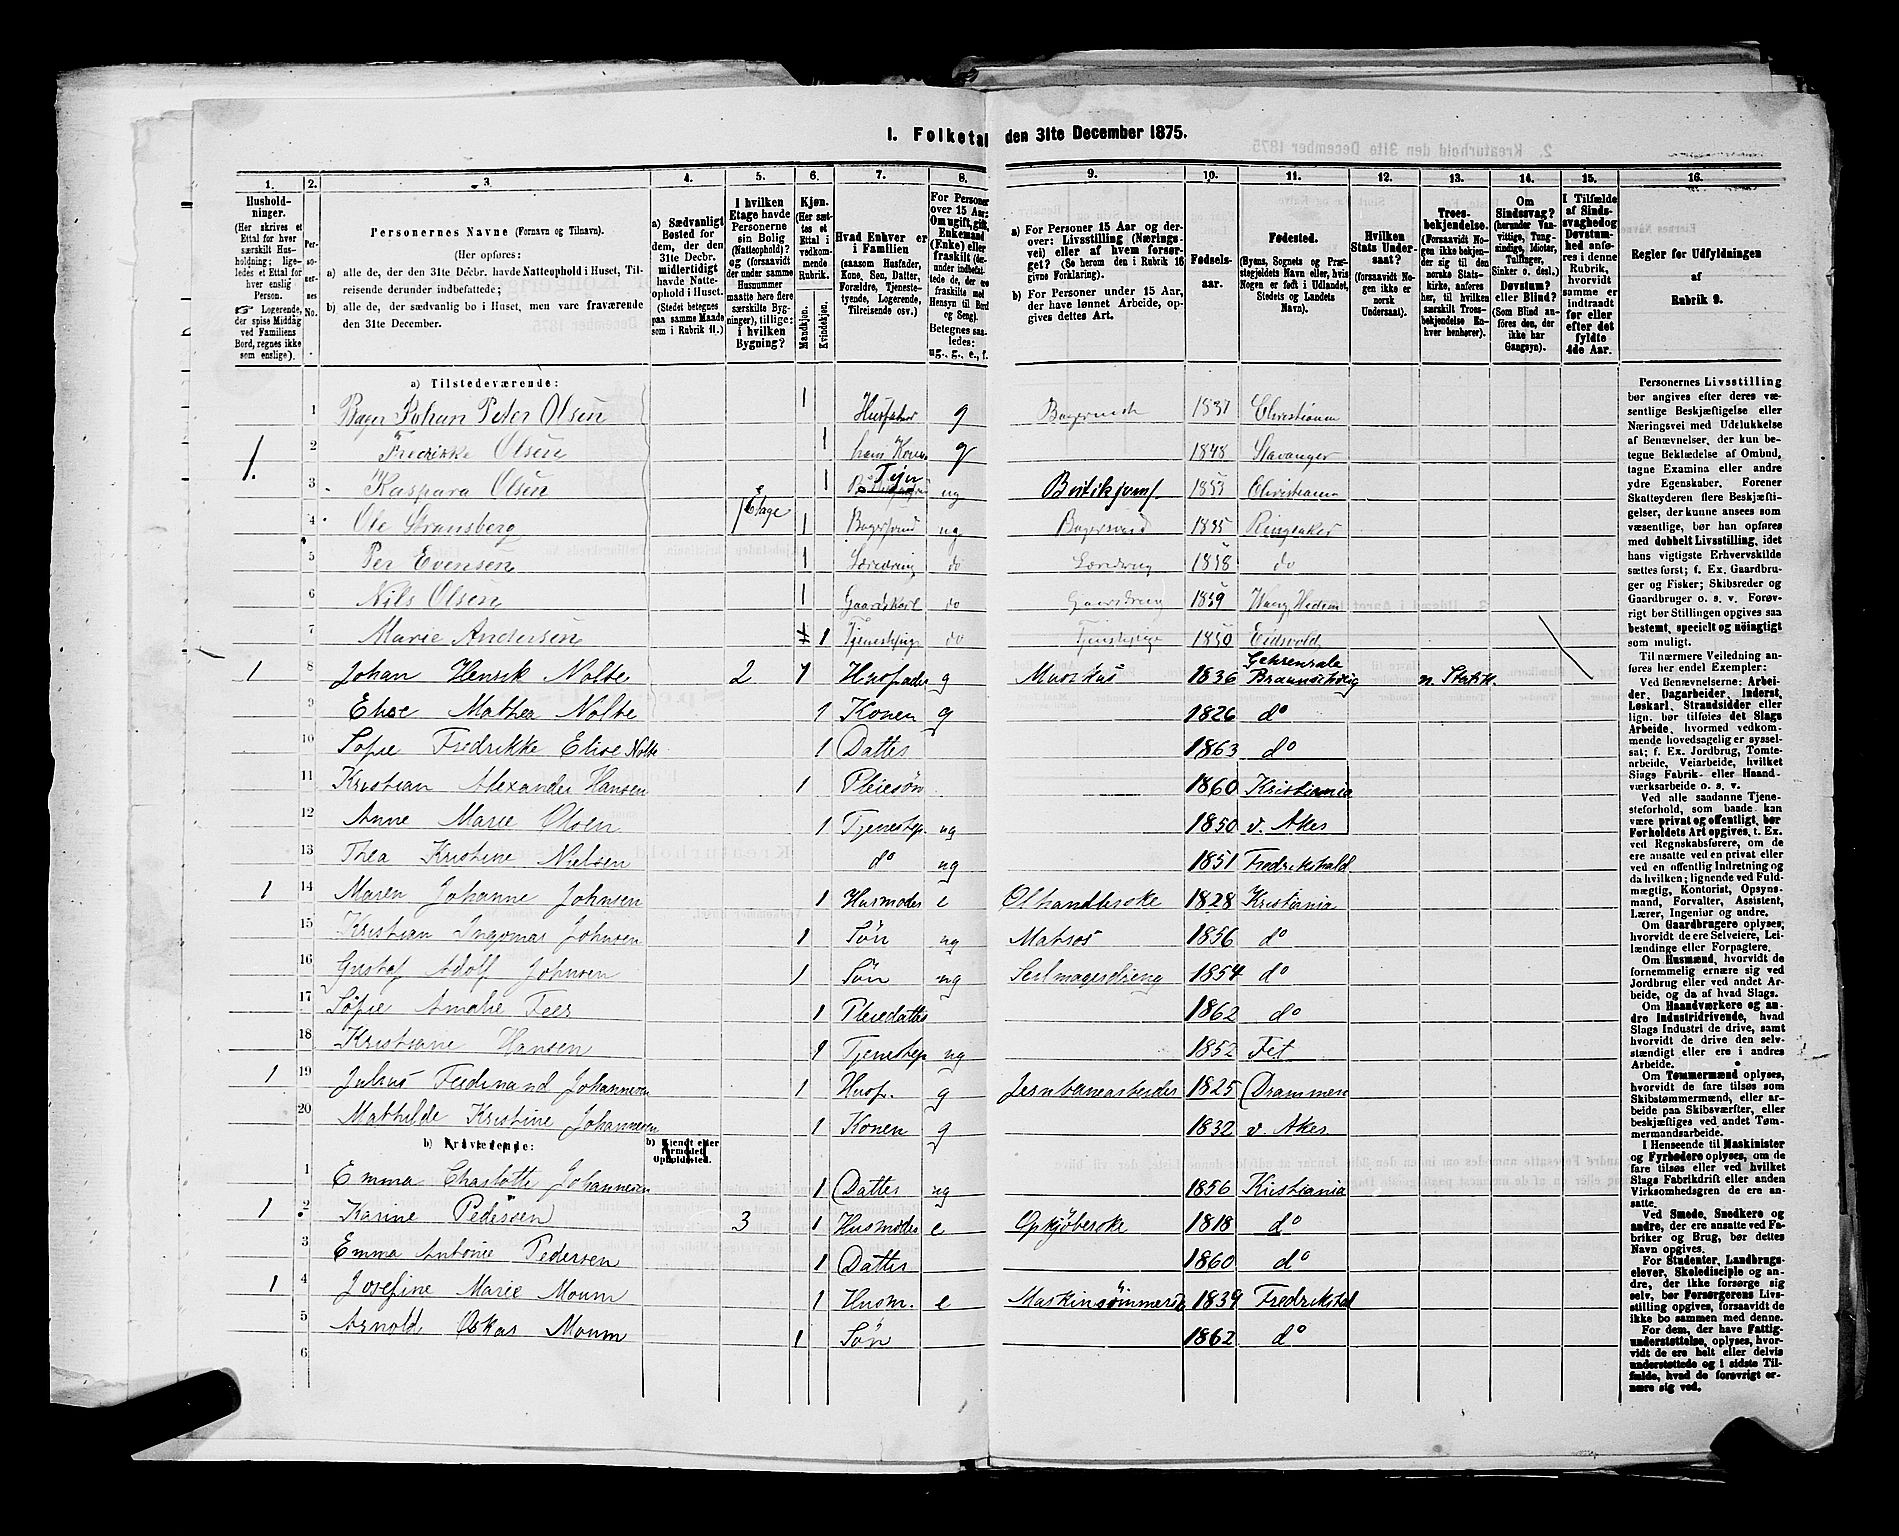 1. Folketal den 31te December 1875.
1. 2. 3. 4. 5. 6. 7. 8. 9. 10. 11. 12. 13. 14. 15. 16.
Hushold-
ninger.
(Her skrives et
Ettal for hver
særskilt Hus-
holdning; lige-
ledes et Ettal for
hver enslig
Person.
Logerende,
der spise Middag
ved Familiens
Bord, regnes ikke
som enslige).
Per-
so-
ner-
nes
No.
Personernes Navne (Fornavn og Tilnavn).
(Her opføres:
a) alle de, der den 31te Decbr. havde Natteophold i Huset, Til-
reisende derunder indbefattede;
b) alle de, der sædvanlig bo i Huset, men vare fraværende
den 31te December.
a) Sædvanligt
Bosted for
dem, der den
31te Decbr.
midlertidigt
havde Natte-
ophold i Huset.
(Stedet betegnes
paa samme Maade
som i Rubrik 11.)
I hvilken
Etage havde
Personerne
sin Bolig
(Natteophold)?
og (forsaavidt
der under samme
Husnummer
maatte høre flere
særskilte Byg-
ninger), tillige:
i hvilken
Bygning?
Kjøn.
(Her sæt-
tes et
Ettal i
vedkom-
mende
Rubrik.)
Mandkjøn.
Kvindekjøn.
Hvad Enhver er
i Familien
(saasom Husfader,
Kone, Søn, Datter,
Forældre, Tjeneste-
tyende, Logerende,
Tilreisende osv.)
For Personer
over 15 Aar:
Om ugift, gift,
Enkemand
(Enke) eller
fraskilt
Hensyn til Bord
og Seng).
Betegnes saa-
ledes:
ug., g., e., f.
a) For Personer 15 Aar og der-
over: Livsstilling (Nærings-
vei) eller af hvem forsør-
get? (Se herom den i Rubrik 16
givne Forklaring).
b) For Personer under 15 Aar,
der have lønnet Arbeide, op-
gives dettes Art.
Fødsels-
aar.
Fødested.
(Byens, Sognets og Præ-
stegjeldets Navn eller, hvis
Nogen er født i Udlandet,
Stedets og Landets
Navn).
Hvilken
Stats Under-
saat?
(forsaavidt No-
gen ikke er
norsk
Undersaat).
Troes-
bekjendelse.
(Forsaavidt No-
gen ikke bekjen-
der sig til den
norske Stats-
kirke, anføres
her, til hvilken
særskilt Troes-
bekjendelse En-
hver henhører).
Om
Sindssvag?
(herunder Van-
vittige, Tung-
sindige, Idioter,
Tullinger,
Sinker o. desl.)
Døvstum?
eller Blind?
(Som Blind an-
føres den, der
ikke har
Gangsyn).
I Tilfælde
af Sinds-
svaghed og
Døvstum-
hed anfø-
res i denne
Rubrik,
hvorvidt
samme er
indtraadt
før eller
efter det
fyldte
4de Aar.
Regler for Udfyldningen
af
Rubrik 9.
a) Tilstedeværende:
1 Bager Johan Peter Olsen 1 Husfader g 1837 Christiania
2 Fredrikke Olsen 1 hans Kone g 1848 Stavanger
1. 3 Kaspara Olsen 1 Tjen ug Butikjomf 1853 Christiania
4 Ole Stransberg 1 Etage 1 Bagersvend ug Bagersvend 1835 Ringsaker
5 Per Evensen 1 Læredreng do Læredreng 1858 do
6 Nils Olsen 1 Gaardskarl do Gaardsdreng 1859 Vang Hedem
7 Marie Andersen 1 Tjenestepige do Tjenstepige 1850 Eidsvold
1 8 Johan Henrik Nolte 2 1 Husfader g Musikus 1836 Gehrenrale Braunschweig n. Statsk.
9 Elise Mathea Nolte 1 Konen g 1826 do
10 Sofie Fredrikke Elise Nolte 1 Datter 1863 do
11 Kristian Alexander Hansen 1 Pleiesøn 1860 Kristiania
12 Anne Marie Olsen 1 Tjenestep. ug 1850 v. Aker
13 Thea Kristine Nielsen do ug 1851 Fredrikshald
1 14 Maren Johanne Johnsen 1 Husmoder e Olhandlerske 1828 Kristiania
15 Kristian Ingomar Johnsen 1 Søn ug Matros 1856 do
16 Gustaf Adolf Johnsen 1 Søn ug Seilmagerdreng 1854 do
17 Sofie Amalie Feer 1 Pleiedatter 1862 do
18 Kristiane Hansen 1 Tjenestep ug 1852 Fet
1 19 Julius Ferdinand Johannesen 1 Husf. g Jernbanearbeider 1825 Drammen
20 Mathilde Kristine Johannesen 1 Konen g 1832 v. Aker
b) Fraværende:
b) Kjendt eller
formodet
Opholdssted.
1 Emma Charlotte Johannesen 1 Datter ug 1856 Kristiania
1 2 Karine Pedersen 3 1 Husmoder e Opkjøberske 1818 do
3 Emma Antonie Pedersen 1 Datter 1860 do
1 4 Josefine Marie Moum 1 Husm. e Maskinsømmerske 1839 Fredrikstad
5 Arnold Oskar Moum 1 Søn 1862 do
6
Personernes Livsstilling
bør angives efter deres væ-
sentlige Beskjæftigelse eller
Næringsvei med Udelukkelse
af Benævnelser, der kun be-
tegne Beklædelse af Ombud,
tagne Examina eller andre
ydre Egenskaber. Forener
Skatteyderen flere Beskjæfti-
gelser, der kunne ansees som
væsentlige, bør han opføres
med dobbelt Livsstilling, idet
hans vigtigste Erhvervskilde
sættes først; f. Ex. Gaardbru-
ger og Fisker; Skibsreder og
Gaardbruger o. s. v. Forøv-
rigt bør Stillingen opgives saa
bestemt, specielt og nöiagtigt
som muligt.
Til nærmere Veiledning an-
føres her endel Exempler:
Ved Benævnelserne: Arbei-
der, Dagarbeider, Inderst,
Løskarl, Strandsidder eller
lign. bør tilføies det Slags
Arbeide, hvormed vedkom-
mende hovedsagelig er syssel-
sat; f. Ex. Jordbrug, Tomte-
arbeide, Veiarbeide, hvilket
Slags Fabrik- eller Haand-
værksarbeide o. s. v.
Ved alle saadanne Tjene-
steforhold, som baade kan
være privat og offentligt, bør
Forholdets Art opgives, t. Ex.
ved Regnskabsførere, om de
ere ansatte ved en privat eller
en offentlig Indretning og
da hvilken; lignende ved Fuld-
mægtig, Kontorist, Opsyns-
mand, Forvalter, Assistent,
Lærer, Ingeniør og andre.
Om Gaardbrugere oplyses,
hvorvidt de ere Selveiere, Lei-
lændinge eller Forpagtere.
Om Husmænd, hvorvidt de
fornemmelig ernære sig ved
Jordbrug eller ved andet Ar-
beide, og da af hvad Slags.
Om Haandværkere og an-
dre Industridrivende, hvad
Slags Industri de drive, samt
hvorvidt de drive den selv-
stændigt eller ere i andres
Arbeide.
Om Tømmermænd oplyses,
hvorvidt de fare tilsøs som
Skibstømmermænd, eller ar-
beide paa Skibsværfter, eller
beskjæftiges ved andet Tøm-
mermandsarbeide.
I Henseende til Maskinister
og Fyrbødere oplyses, om de
fare tilsøs eller ved hvilket
Slags Fabrikdrift eller anden
Virksomhedsgren de ere an-
satte.
Ved Smede, Snedkere og
andre, der ere ansatte ved Fa-
briker og Brug, bør dettes
Navn opgives.
For Studenter, Landbrugs-
elever, Skoledisciple og an-
dre, der ikke forsørge sig
selv, bør Forsørgerens Livs-
stilling opgives, forsaavidt de
ikke bo sammen med denne.
For dem, der have Fattig-
understøttelse, oplyses, hvor-
vidt de ere helt eller delvis
understøttede og i sidste Til-
fælde, hvad de forøvrigt er-
nære sig ved.